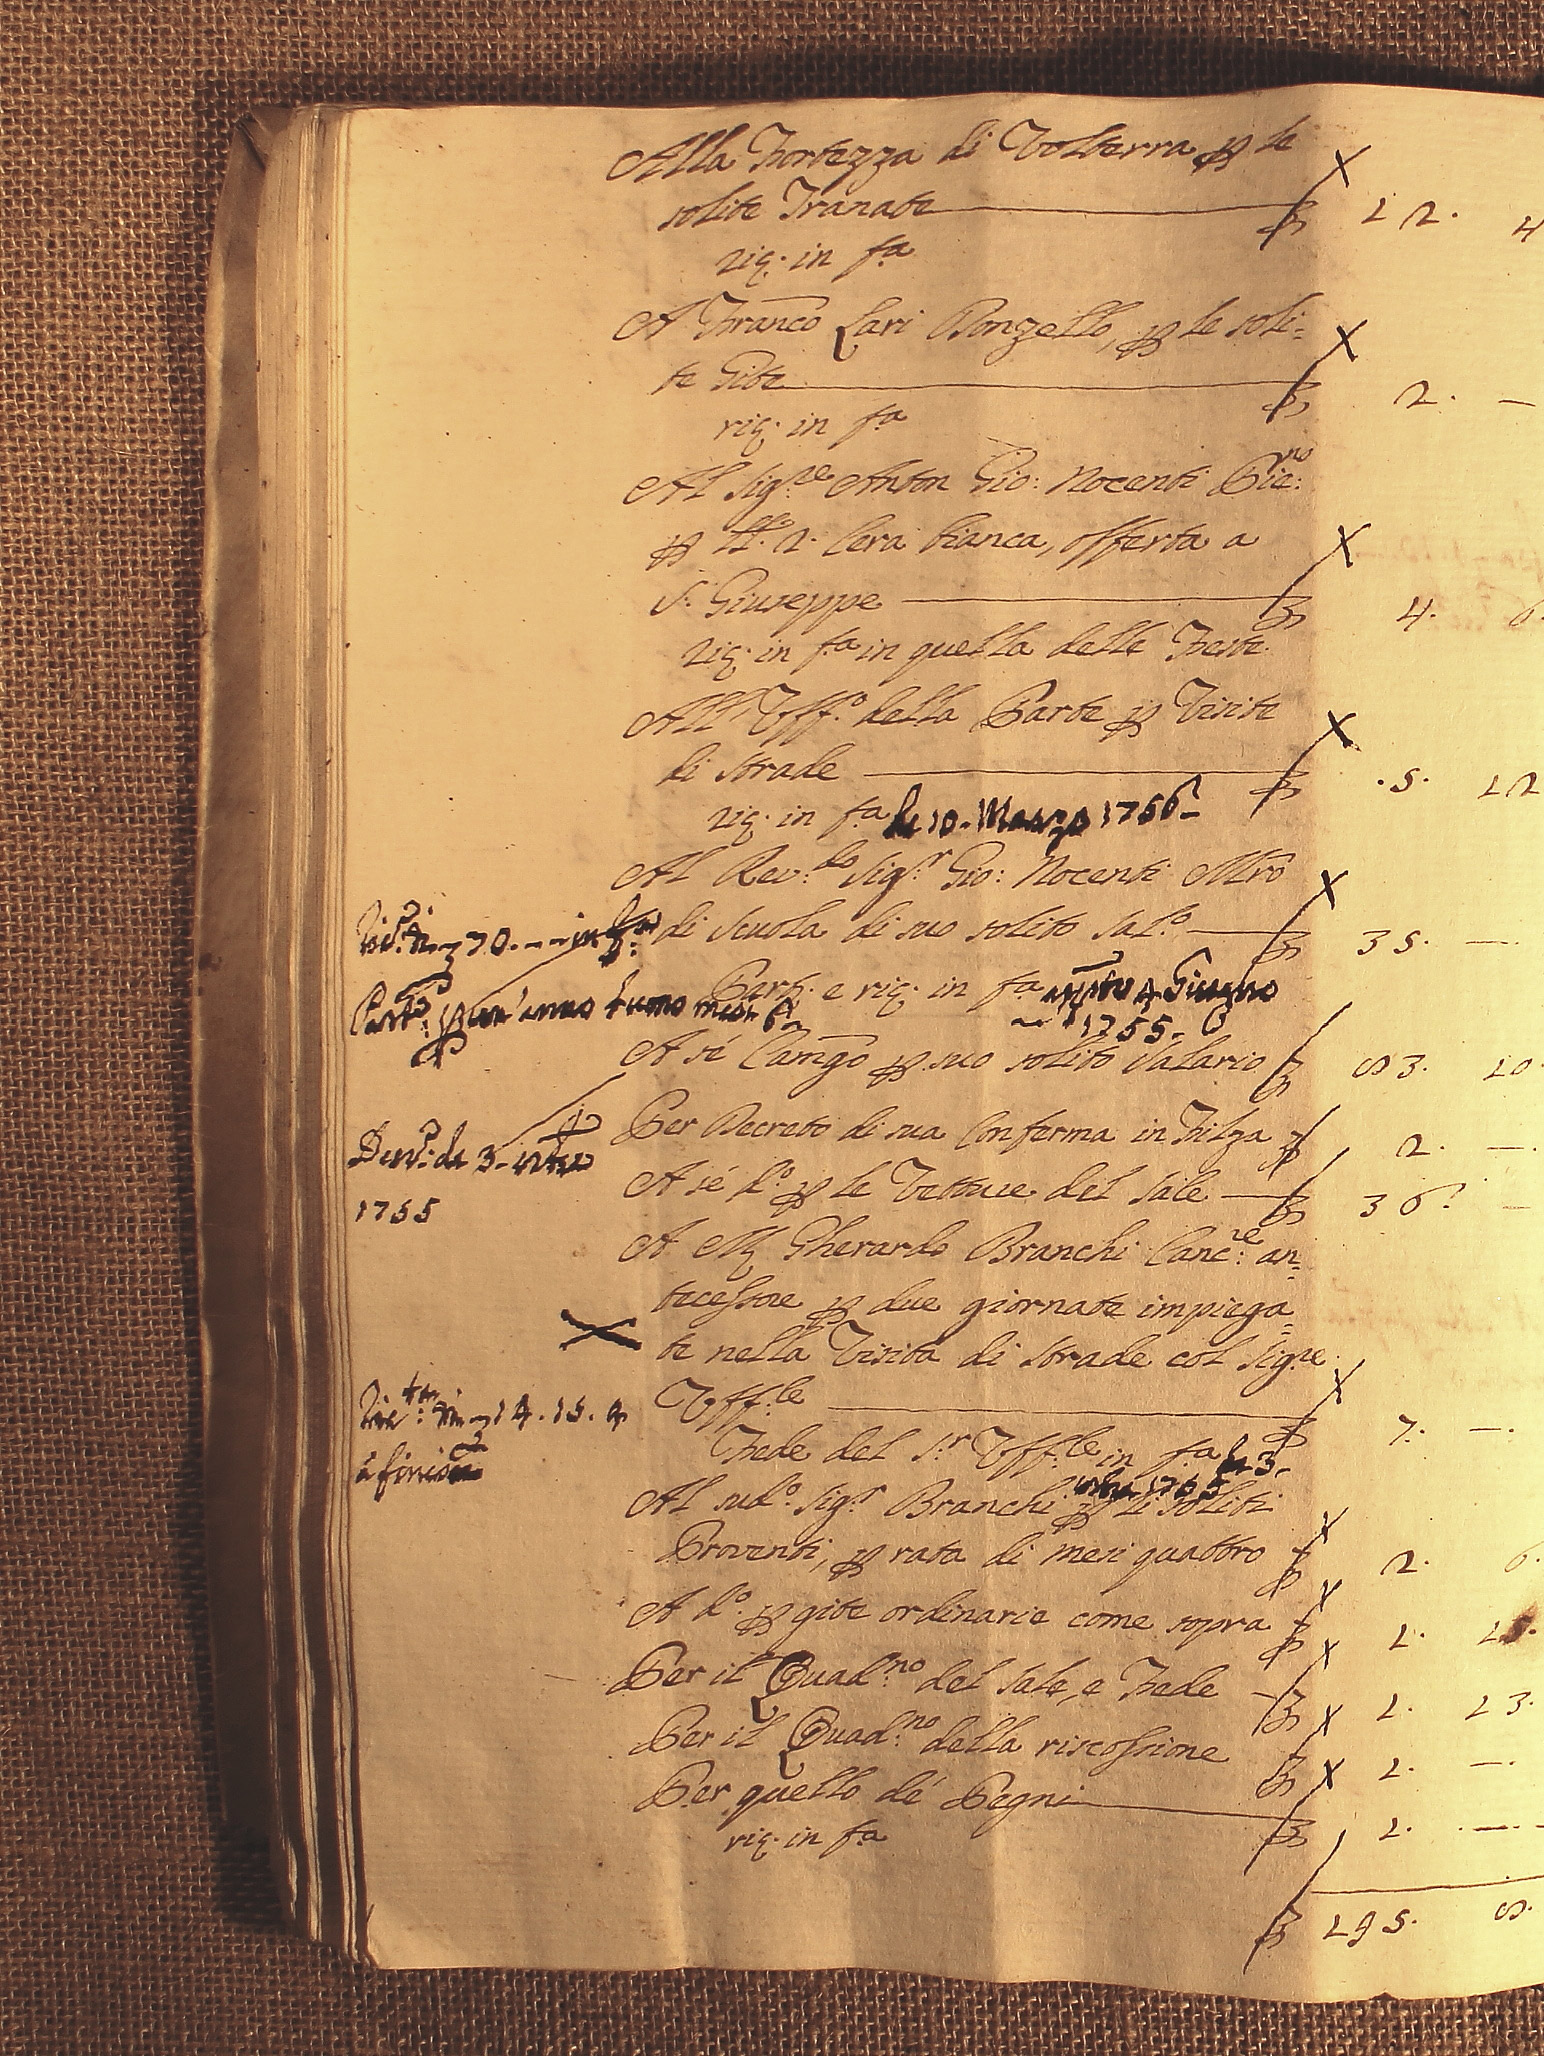 Alla Fortezza di Volterra p le
solite Tranate 12. 4
ric: in fa
A Franco Lari Donzello, p le soli-
te Gite 2. —
ric: in fa
Al Sigre Anton Gio: Nocenti Pie:no
p ll. 2. Cera bianca, offerta a
S. Giuseppe 4. 6
ric: in fa in quella delle Feste
All' Uff.o della Parte p Visite
di strade .5. 12
ric: in fa de 10. Marzo 1756
Al Rev:do Sig.r Gio: Nocenti Mro
di Scuola di suo solito Sal.o 35. —
70. — in
Part. e ric: in fa 4 Giugno
1755.
Part. p un' anno
A sé Camgo p suo solito Salario 83. 10
Per Decreto di sua Conferma in Filza 2. —
de 3.
1755
A sé d.o p le Vetture del Sale 36. —
A M Gherardo Branchi Canc:re an-
tecessore p due giornate impiega-
te nella Visita di Strade col Sigre
Uff.le 7. —
14. 15. 4
Fede del S.r Uff.le in fa de 3.
1755
Al sud.o Sig.r Branchi p li soliti
Proventi, p rata di mesi quattro 2. 6
A d.o p gite ordinarie come sopra 1.
Per il Quad:no del Sale, e Fede 1. 13.
Per il Quad:no della riscossione 1. —
Per quello dé Pegni 1. —
ric: in fa
195. 8.